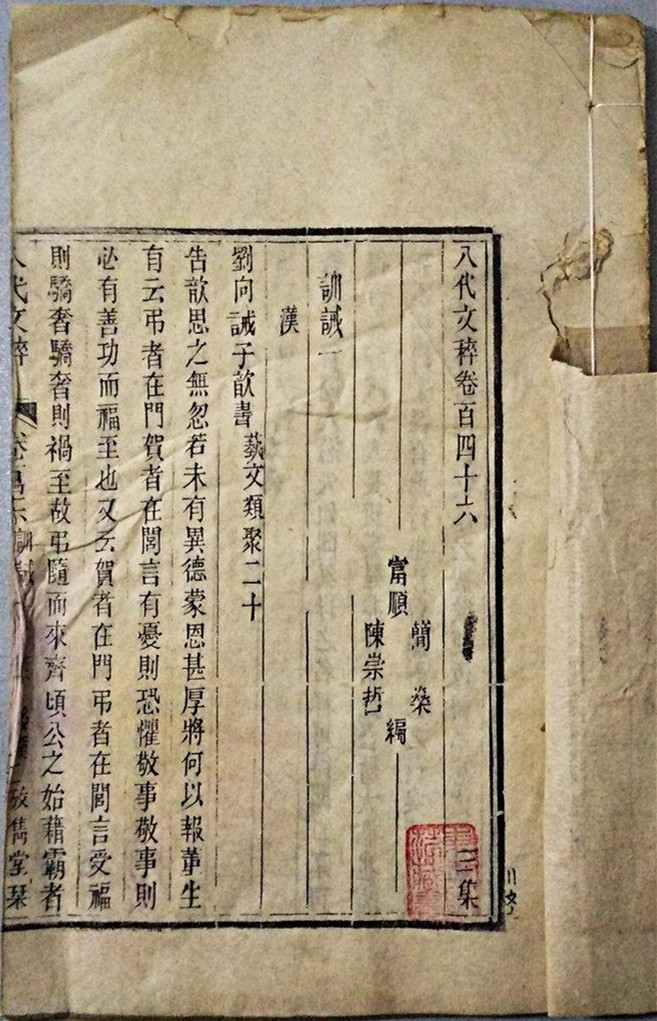 八代文稡卷百四十六 三集
富順 簡燊 陳崇哲 編
訓誡一
漢
劉向誡子歆書 蓺文類聚二十
告歆思之無忽若未有異德蒙恩甚厚將何以報董生
有云弔者在門賀者在閭言有憂則恐懼敬事敬事則
必有善功而福至也又云賀者在門弔者在閭言受福
則驕奢驕奢則禍至故弔隨而來齊頃公之始藉霸者
八代文稡 訓誡一 儁堂琹